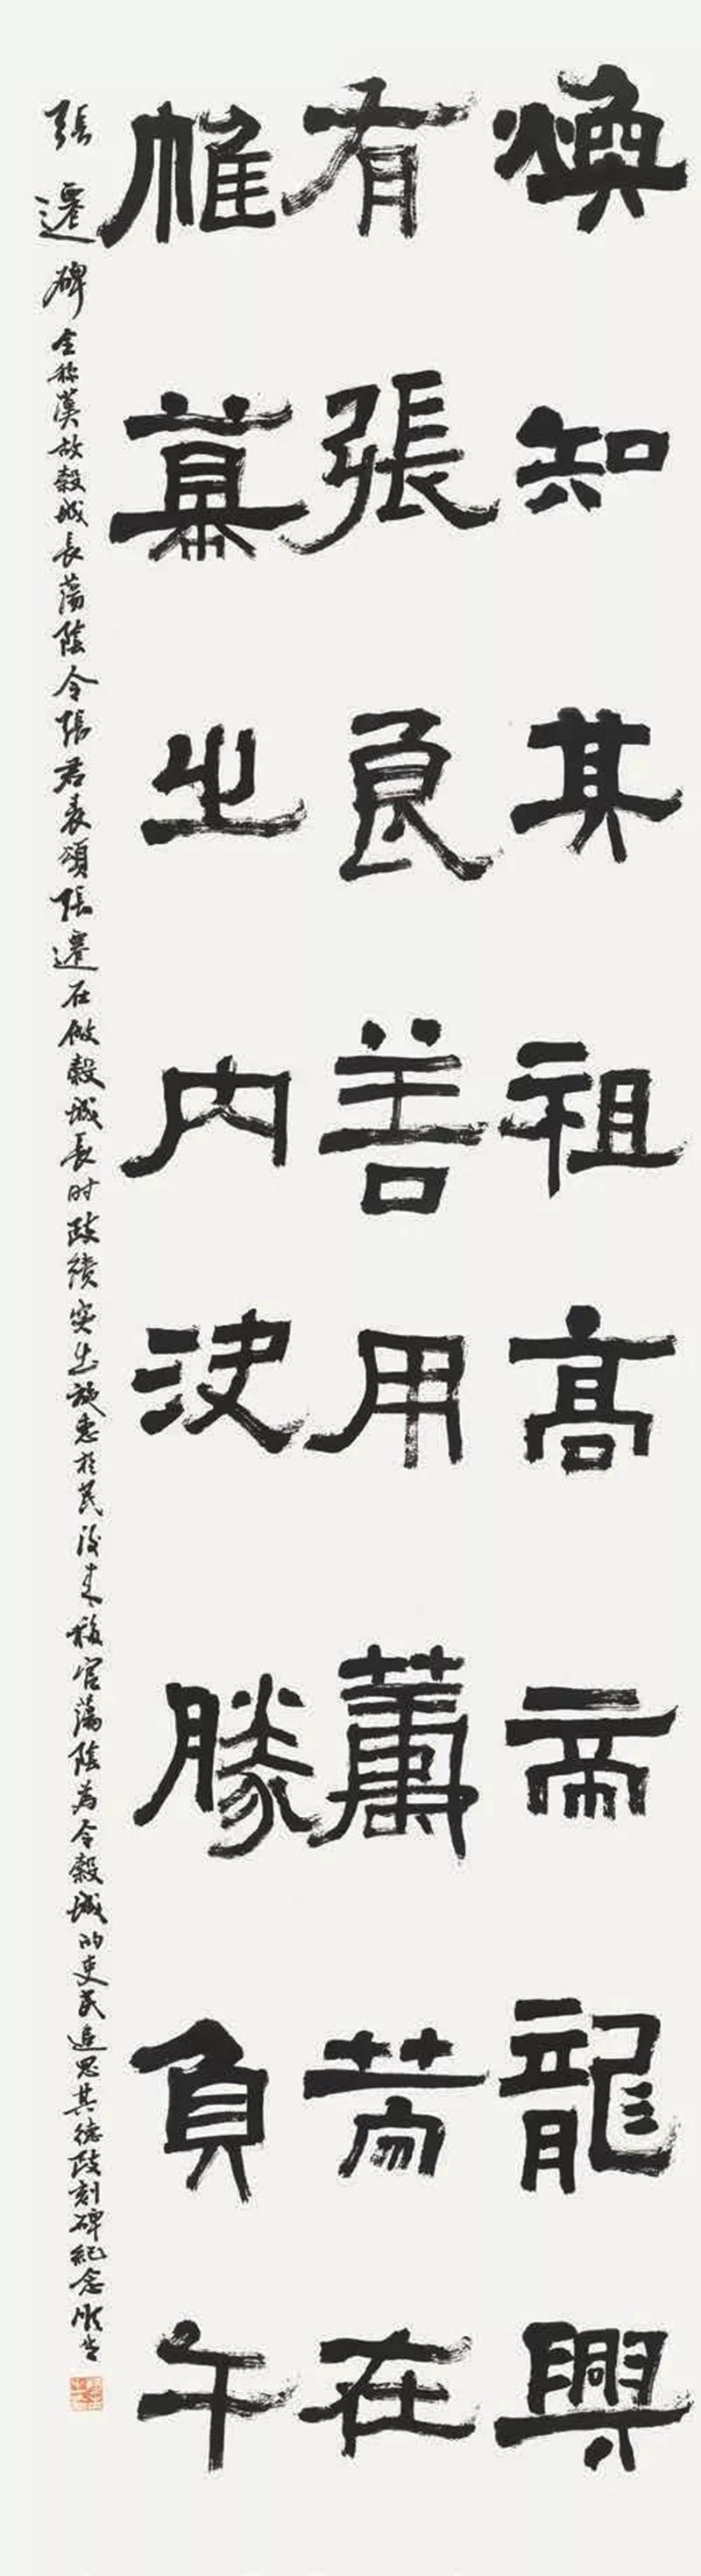 煥知其祖高帝龍興
有張良善用籌在
帷幕之内決勝負午
張遷碑全称漢故穀城長蕩陰令張君表頌張遷在做穀城長时政績突出施惠於民後来移官蕩陰為令穀城的吏民追思其德政刻碑紀念